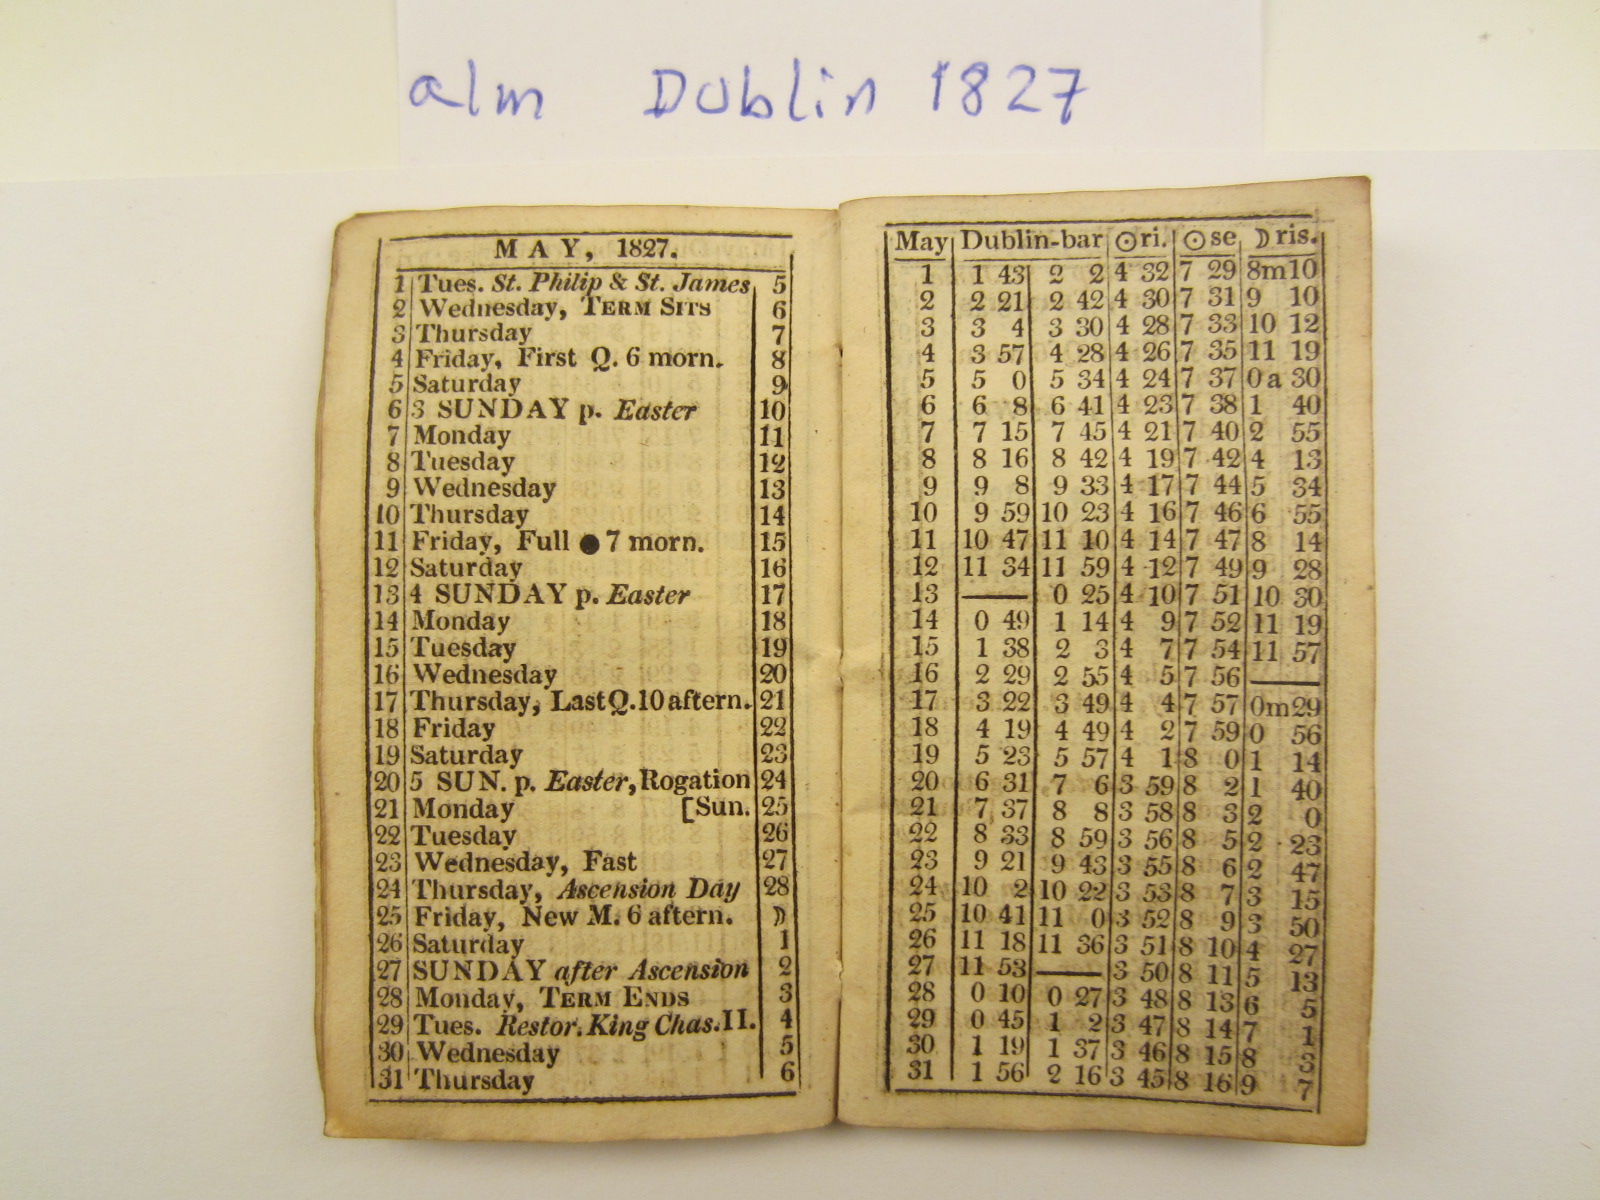 alm Dublin 1827
MAY, 1827.
1 Tues. St. Philip & St. James 5
2 Wednesday, TERM SITS 6
3 Thursday 7
4 Friday, First Q. 6 morn. 8
5 Saturday 9
6 3 SUNDAY p. Easter 10
7 Monday 11
8 Tuesday 12
9 Wednesday 13
10 Thursday 14
11 Friday, Full ● 7 morn. 15
12 Saturday 16
13 4 SUNDAY p. Easter 17
14 Monday 18
15 Tuesday 19
16 Wednesday 20
17 Thursday, Last Q. 10 aftern. 21
18 Friday 22
19 Saturday 23
20 5 SUN. p. Easter, Rogation 24
21 Monday [Sun. 25
22 Tuesday 26
23 Wednesday, Fast 27
24 Thursday, Ascension Day 28
25 Friday, New M. 6 aftern. ☽
26 Saturday 1
27 SUNDAY after Ascension 2
28 Monday, TERM ENDS 3
29 Tues. Restor. King Chas. II. 4
30 Wednesday 5
31 Thursday 6
May Dublin-bar ☉ ri. ☉ se ☽ ris.
1 1 43 2 2 4 32 7 29 8m10
2 2 21 2 42 4 30 7 31 9 10
3 3 4 3 30 4 28 7 33 10 12
4 3 57 4 28 4 26 7 35 11 19
5 5 0 5 34 4 24 7 37 0 a 30
6 6 8 6 41 4 23 7 38 1 40
7 7 15 7 45 4 21 7 40 2 55
8 8 16 8 42 4 19 7 42 4 13
9 9 8 9 33 4 17 7 44 5 34
10 9 59 10 23 4 16 7 46 6 55
11 10 47 11 10 4 14 7 47 8 14
12 11 34 11 59 4 12 7 49 9 28
13 — 0 25 4 10 7 51 10 30
14 0 49 1 14 4 9 7 52 11 19
15 1 38 2 3 4 7 7 54 11 57
16 2 29 2 55 4 5 7 56 —
17 3 22 3 49 4 4 7 57 0m29
18 4 19 4 49 4 2 7 59 0 56
19 5 23 5 57 4 1 8 0 1 14
20 6 31 7 6 3 59 8 2 1 40
21 7 37 8 8 3 58 8 3 2 0
22 8 33 8 59 3 56 8 5 2 23
23 9 21 9 43 3 55 8 6 2 47
24 10 2 10 22 3 53 8 7 3 15
25 10 41 11 0 3 52 8 9 3 50
26 11 18 11 36 3 51 8 10 4 27
27 11 53 — 3 50 8 11 5 13
28 0 10 0 27 3 48 8 13 6 5
29 0 45 1 2 3 47 8 14 7 1
30 1 19 1 37 3 46 8 15 8 3
31 1 56 2 16 3 45 8 16 9 7